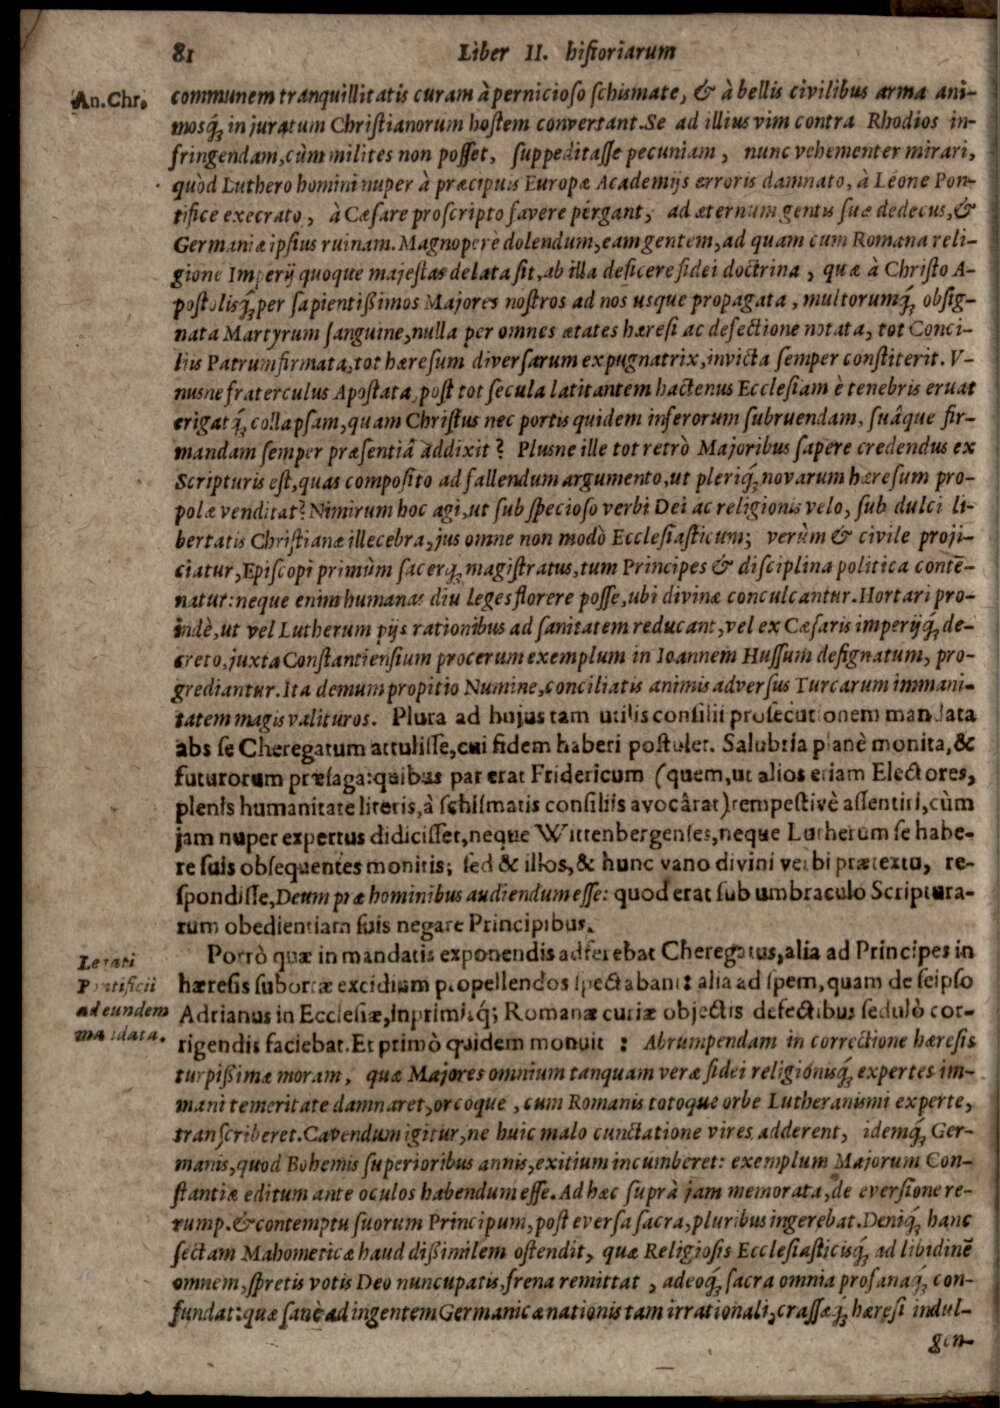 81 Liber II. historiarum
An.Chr. communem tranquillitatis curam à pernicioso schismate, & à bellis civilibus arma ani-
mosq́; in juratum Christianorum hostem convertant. Se ad illius vim contra Rhodios in-
fringendam, cùm milites non posset, suppeditasse pecuniam, nunc vehementer mirari,
quòd Luthero homini nuper à præcipuis Europæ Academijs erroris damnato, à Leone Pon-
tifice execrato, à Cæsare proscripto favere pergant, ad æternum gentis suæ dedecus, &
Germaniæ ipsius ruinam. Magnoperè dolendum, eam gentem, ad quam cum Romana reli-
gione Imperij quoque majestas delata sit, ab illa deficere fidei doctrina, quæ à Christo A-
postolisq́; per sapientißimos Majores nostros ad nos usque propagata, multorumq́; obsig-
nata Martyrum sanguine, nulla per omnes ætates hæresi ac defectione notata, tot Conci-
liis Patrum firmata, tot hæresum diversarum expugnatrix, invicta semper constiterit. V-
nusne fraterculus Apostata, post tot secula latitantem hactenus Ecclesiam è tenebris eruat
erigatq́; collapsam, quam Christus nec portis quidem inferorum subruendam, suâque fir-
mandam semper præsentiâ addixit? Plusne ille tot retrò Majoribus sapere credendus ex
Scripturis est, quas composito ad fallendum argumento, ut pleriq́; novarum hæresum pro-
polæ venditat? Nimirum hoc agi, ut sub specioso verbi Dei ac religionis velo, sub dulci li-
bertatis Christianæ illecebra, jus omne non modò Ecclesiasticum; verùm & civile proji-
ciatur, Episcopi primùm sacerq́; magistratus, tum Principes & disciplina politica contē-
natur: neque enim humanas diu leges florere posse, ubi divinæ conculcantur. Hortari pro-
indè, ut vel Lutherum pijs rationibus ad sanitatem reducant, vel ex Cæsaris imperijq́; de-
creto, juxta Constantiensium procerum exemplum in Ioannem Hussum designatum, pro-
grediantur. Ita demum propitio Numine, conciliatis animis adversus Turcarum immani-
tatem magis valituros. Plura ad hujus tam utilis consilii prosecutionem mandata
abs se Cheregatum attulisse, cui fidem haberi postulet. Salubria planè monita, &
futurorum præsaga: quibus par erat Fridericum (quem, ut alios etiam Electores,
plenis humanitate literis, à schismatis consiliis avocârat) tempestivè assentiri, cùm
jam nuper expertus didicisset, neque Wittenbergenses, neque Lutherum se habe-
re suis obsequentes monitis; sed & illos, & hunc vano divini verbi prætextu, re-
spondisse, Deum præ hominibus audiendum esse: quod erat sub umbraculo Scriptura-
rum obedientiam suis negare Principibus.
Legati Pontificii ad eundem mandata.
Porrò quæ in mandatis exponendis adferebat Cheregatus, alia ad Principes in
hæresis subortæ excidium propellendos spectabant: alia ad spem, quam de seipso
Adrianus in Ecclesiæ, inprimisq́; Romanæ curiæ objectis defectibus sedulò cor-
rigendis faciebat. Et primò quidem monuit : Abrumpendam in correctione hæresis
turpißimæ moram, quæ Majores omnium tanquam veræ fidei religionisq́; expertes im-
mani temeritate damnaret, orcoque, cum Romanis totoque orbe Lutheranismi experte,
transcriberet. Cavendum igitur, ne huic malo cunctatione vires adderent, idemq́; Ger-
manis, quod Bohemis superioribus annis, exitium incumberet: exemplum Majorum Con-
stantiæ editum ante oculos habendum esse. Ad hæc suprà jam memorata, de eversione re-
rump. & contemptu suorum Principum, post eversa sacra, pluribus ingerebat. Deniq́; hanc
sectam Mahometicæ haud dißimilem ostendit, quæ Religiosis Ecclesiasticisq́; ad libidinē
omnem, spretis votis Deo nuncupatis, frena remittat, adeoq́; sacra omnia profanaq́; con-
fundat: quæ sanè ad ingentem Germanicæ nationis tam irrationali, crassæq́; hæresi indul-
gen-